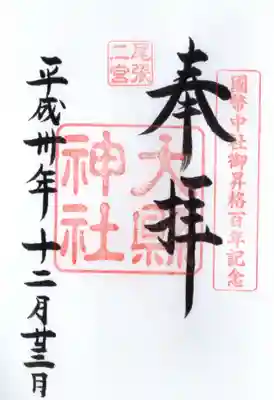 國幣中社御昇格百年記念
奉拝
尾張
二宮
大縣
神社
平成卅年十二月廿三日